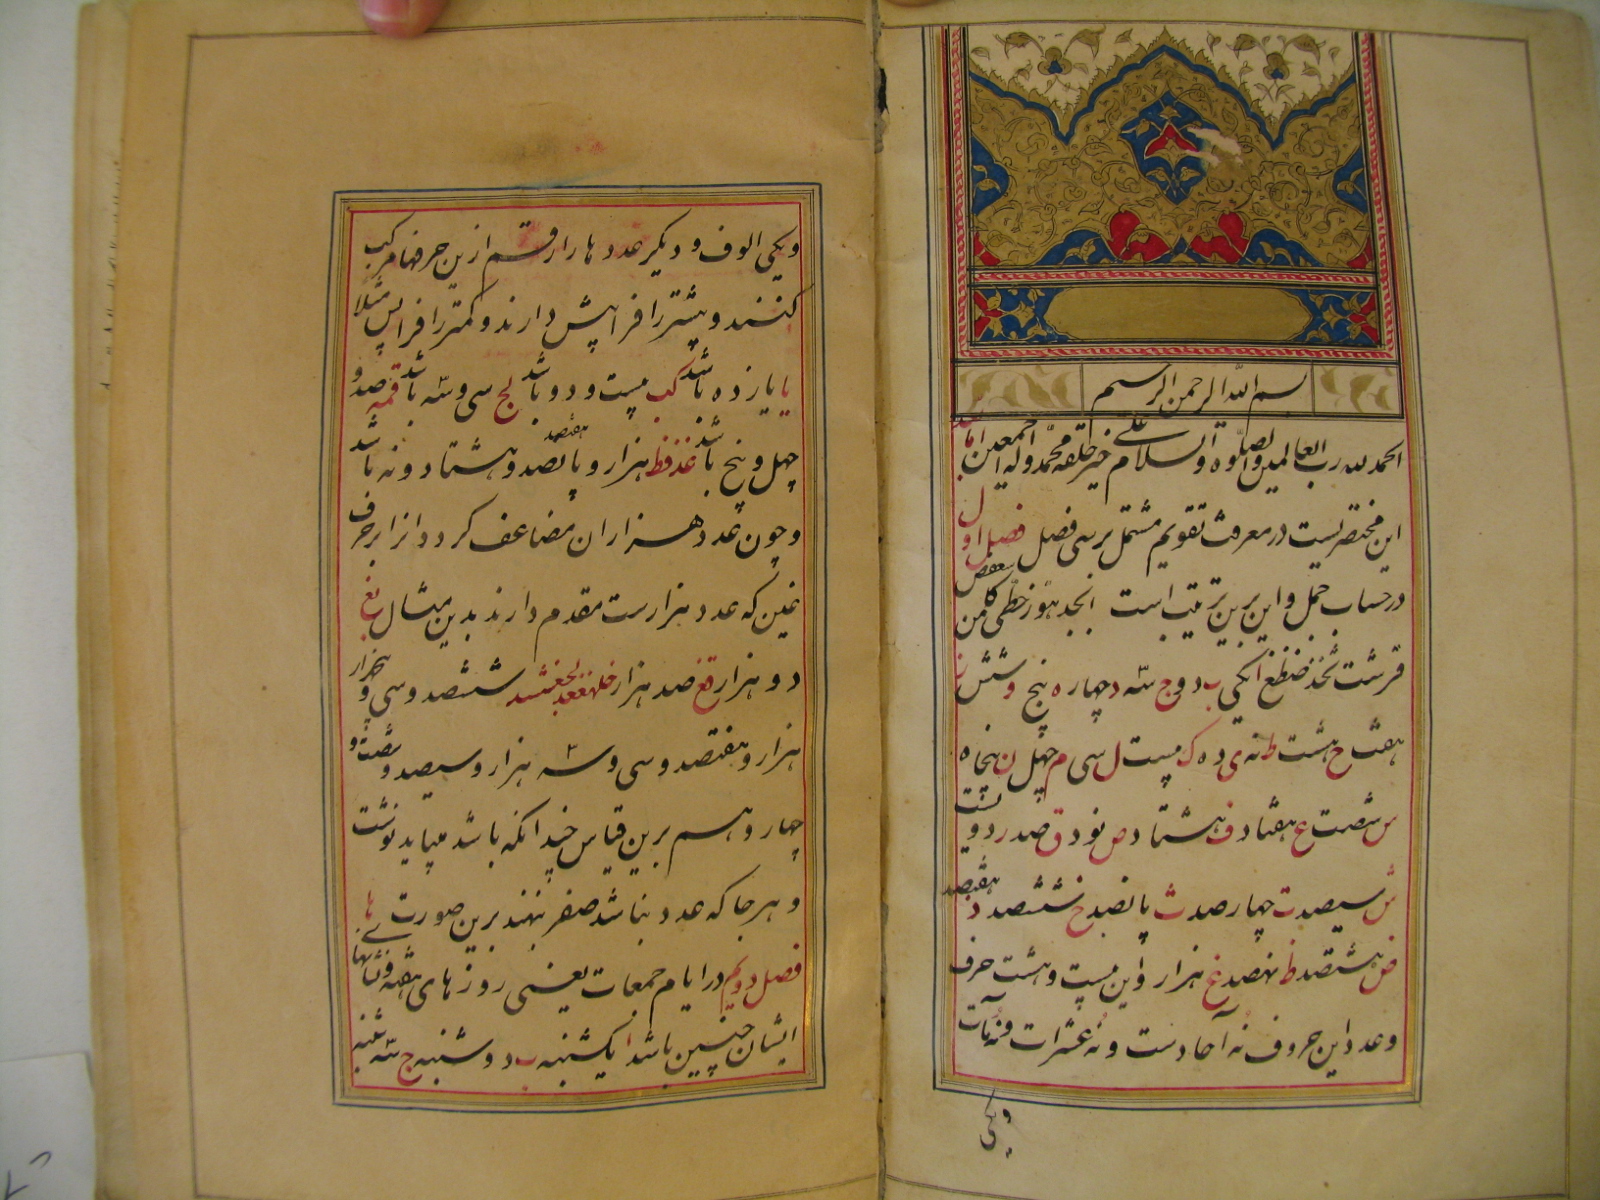 بسم الله الرحمن الرحیم
الحمد لله رب العالمین والصلوة والسلام علی خیر خلقه محمد وآله اجمعین اما بعد
این مختصریست در معرفت تقویم مشتمل بر سی فصل فصل اول
در حساب جمل و این برین ترتیب است ابجد هوز حطی کلمن سعفص
قرشت ثخذ ضظغ ا یکی ب دو ج سه د چهار ه پنج و شش ز
هفت ح هشت ط نه ی ده ک بیست ل سی م چهل ن پنجاه
س شصت ع هفتاد ف هشتاد ص نود ق صد ر دویست
ش سیصد ت چهارصد ث پانصد خ ششصد ذ هفتصد
ض هشتصد ظ نهصد غ هزار و این بیست و هشت حرف
و عدد این حروف نه آحادست و نه عشرات و نه مآت
ویکی
ویکی الوف و دیگر عددها را رقم ازین حرفها مرکب
کنند و بیشتر را فرا پیش دارند و کمتر را فرا پس مثلا
یا یازده باشد کب بیست و دو باشد لج سی و سه باشد قمه صد و
چهل و پنج باشد غذفظ هزار و هفتصد و هشتاد و نه باشد
و چون عدد هزاران مضاعف کردد انرا بر حرف
غین که عدد هزارست مقدم دارند بدین مثال بغ
دو هزار قغ صد هزار ششصد و سی و پنجهزار
هزار و هفتصد و سی و سه هزار و سیصد و شصت و
چهار و هم برین قیاس چندانکه باشد میباید نوشت
و هر جا که عدد نباشد صفر بنهند برین صورت
فصل دویم در ایام جمعات یعنی روزهای هفته و نشانها
ایشان چنین باشد ا یکشنبه ب دوشنبه ج سه شنبه